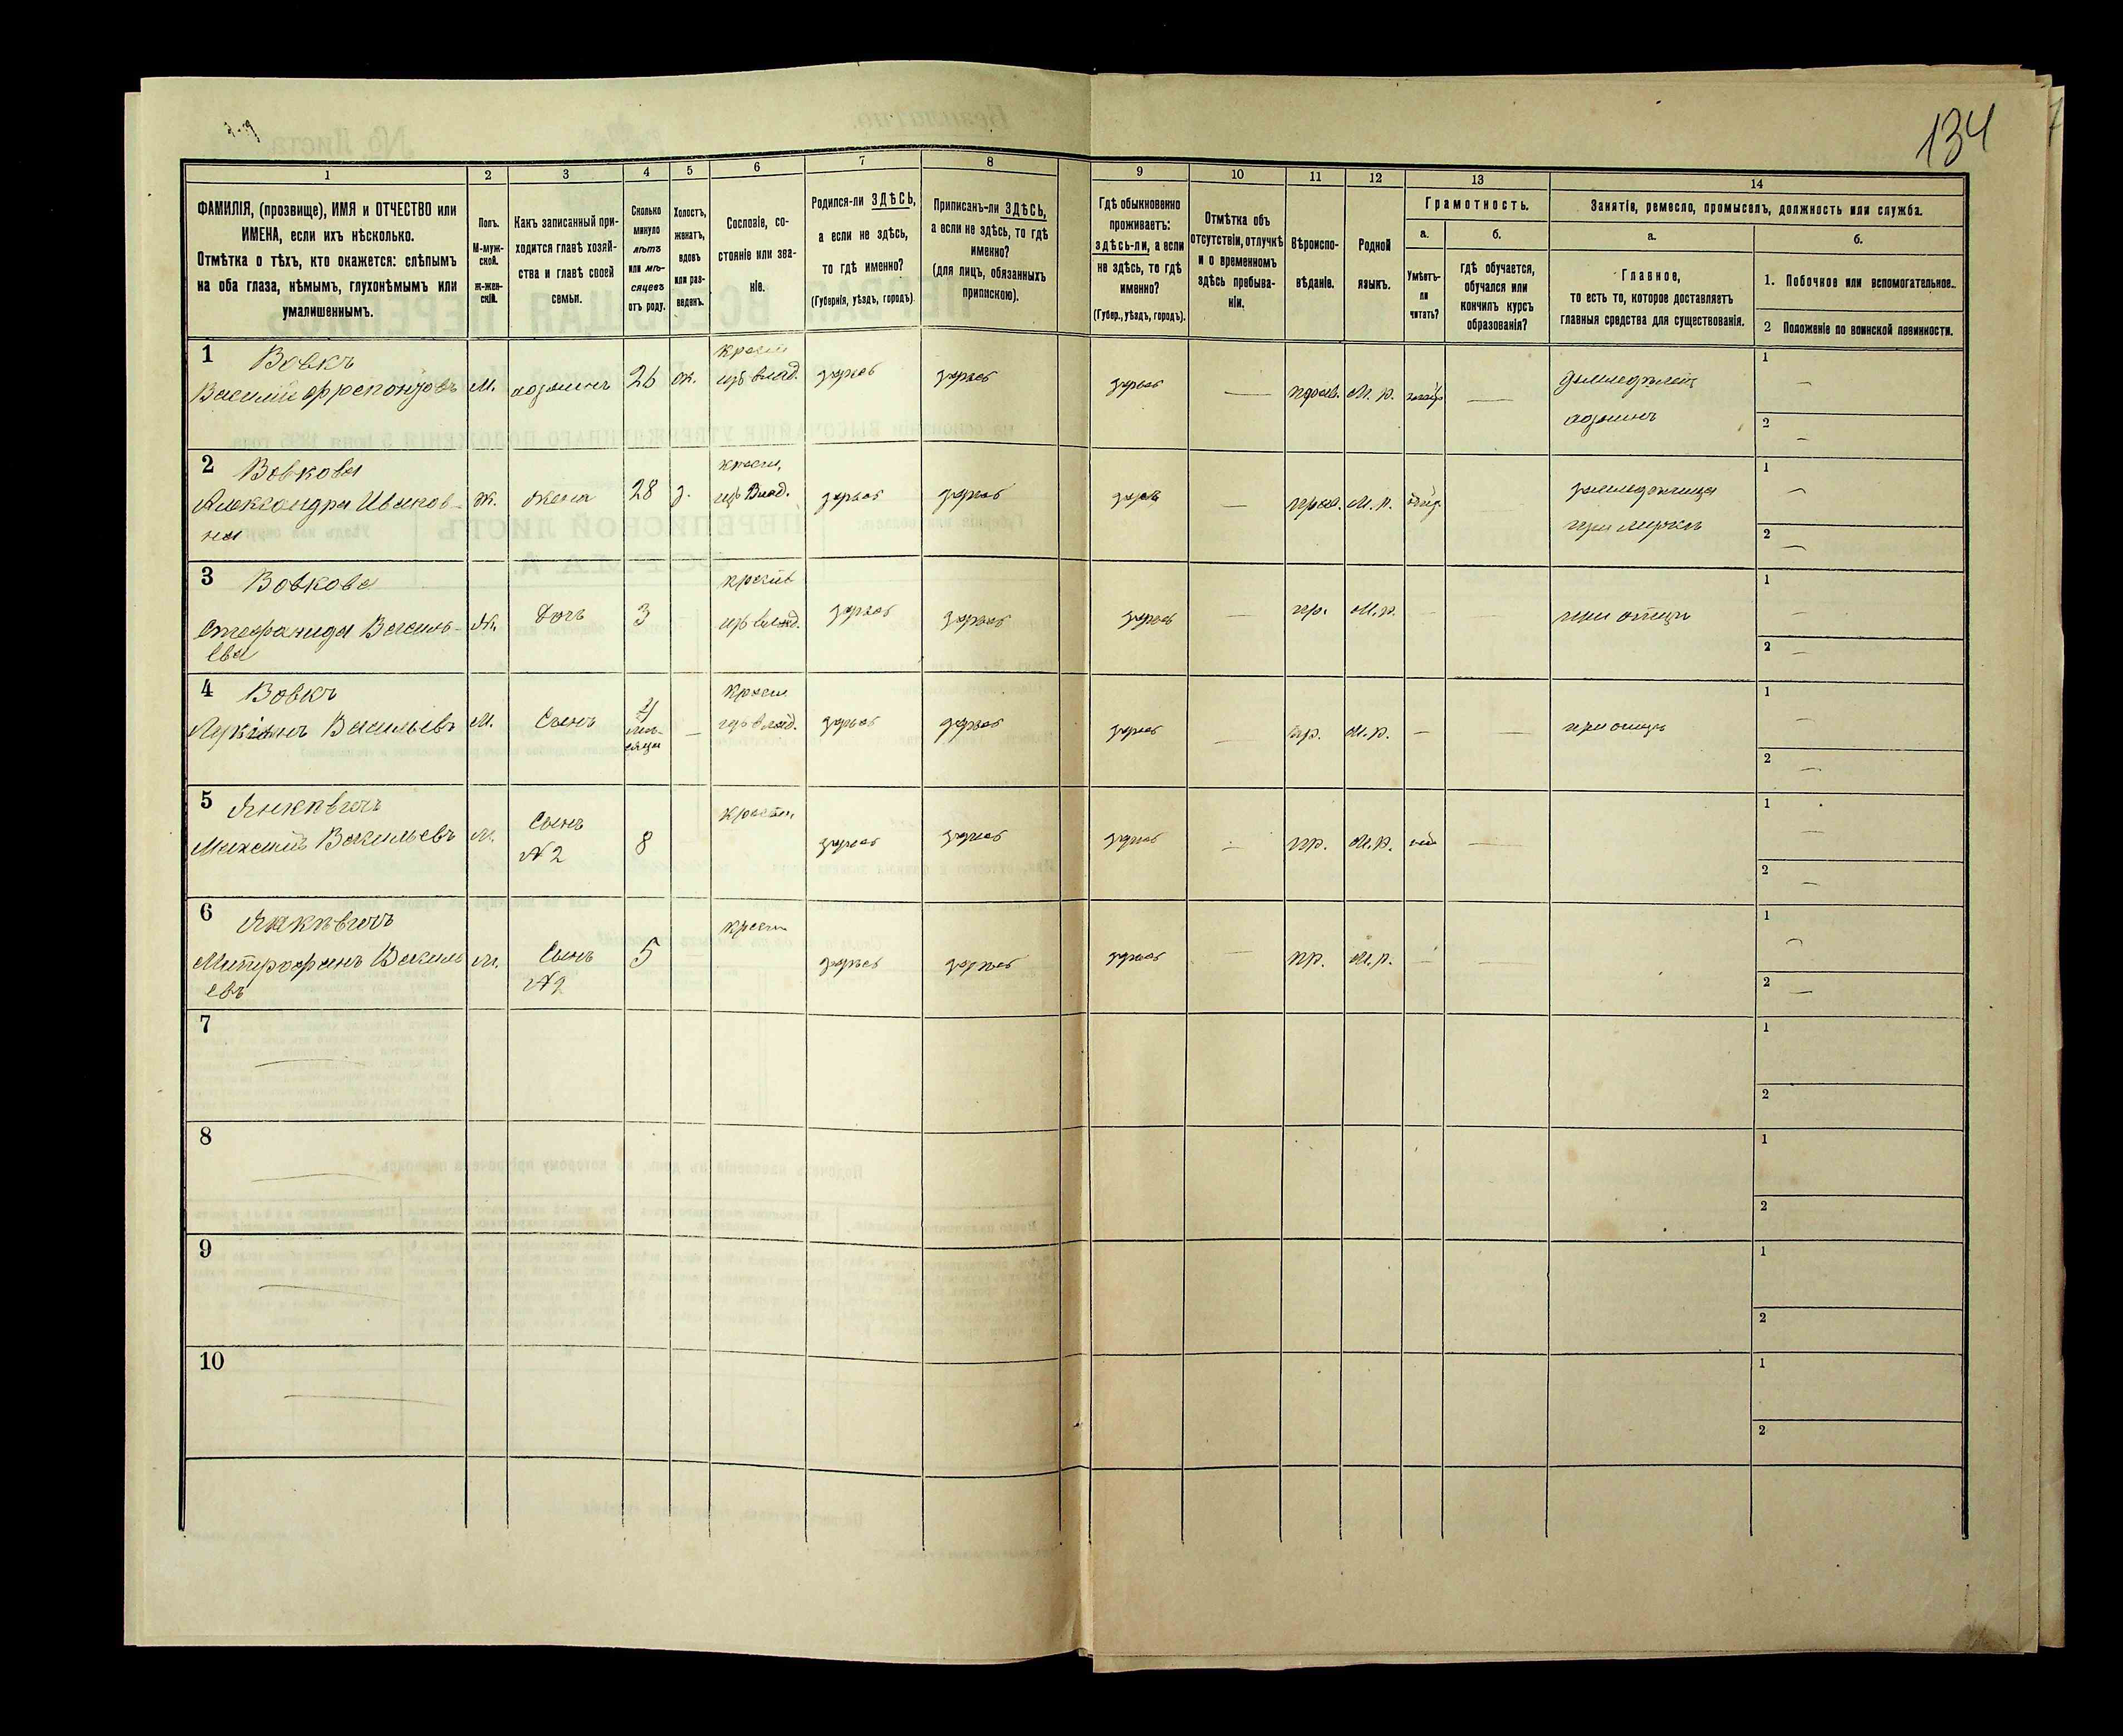 134
1
2
3
4
5
6
7
8
9
10
11
12
13
14
ФАМИЛІЯ, (прозвище), ИМЯ и ОТЧЕСТВО или
ИМЕНА, если ихъ нѣсколько.
Отмѣтка о тѣхъ, кто окажется: слѣпымъ
на оба глаза, нѣмымъ, глухонѣмымъ или
умалишеннымъ.
Полъ.
М-муж-
ской.
ж-жен-
скій.
Какъ записанный при-
ходится главѣ хозяй-
ства и главѣ своей
семьи.
Сколько
минуло
лѣтъ
или мѣ-
сяцевъ
отъ роду.
Холостъ,
женатъ,
вдовъ
или раз-
веденъ.
Сословіе, со-
стояніе или зва-
ніе.
Родился-ли ЗДѢСЬ,
а если не здѣсь,
то гдѣ именно?
(Губернія, уѣздъ, городъ).
Приписанъ-ли ЗДѢСЬ,
а если не здѣсь, то гдѣ
именно?
(для лицъ, обязанныхъ
припискою).
Гдѣ обыкновенно
проживаетъ:
здѣсь-ли, а если
не здѣсь, то гдѣ
именно?
(Губер., уѣздъ, городъ).
Отмѣтка объ
отсутствіи, отлучкѣ
и о временномъ
здѣсь пребыва-
ніи.
Вѣроиспо-
вѣданіе.
Родной
языкъ.
Грамотность.
а.
Умѣетъ-
ли
читать?
б.
гдѣ обучается,
обучался или
кончилъ курсъ
образованія?
Занятіе, ремесло, промыселъ, должность или служба.
а.
Главное,
то есть то, которое доставляетъ
главныя средства для существованія.
б.
1. Побочное или вспомогательное.
2 Положеніе по воинской повинности.
1 Вовкъ
Василій М. хозяинъ 26 ж. крест. изъ влад. здѣсь здѣсь здѣсь — прав. М. р. — земледѣлец
хозяинъ
1 —
2 —
2 Вовкова
Александра Иванов-
на Ж. жена 28 з. крест. изъ влад. здѣсь здѣсь здѣсь — прав. М. р.
при мужѣ
1 —
2 —
3 Вовкова
Стефанида Василь-
ева Ж. Дочь 3 крест. изъ влад. здѣсь здѣсь здѣсь — пр. М. р. — — при отцѣ
1 —
2 —
4 Вовкъ
Лукіянъ Васильевъ М. Сынъ 4 мѣ-
сяца — крест. изъ влад. здѣсь здѣсь здѣсь — пр. М. р. — — при отцѣ
1 —
2 —
5
Васильевъ М. Сынъ
№2 8 крест. здѣсь здѣсь здѣсь — пр. М. р. —
1 —
2 —
6
Митрофанъ Василь
евъ М. Сынъ
№2 5 крест. здѣсь здѣсь здѣсь — пр. М. р. — —
1 —
2 —
7
1
2
8
1
2
9
1
2
10
1
2